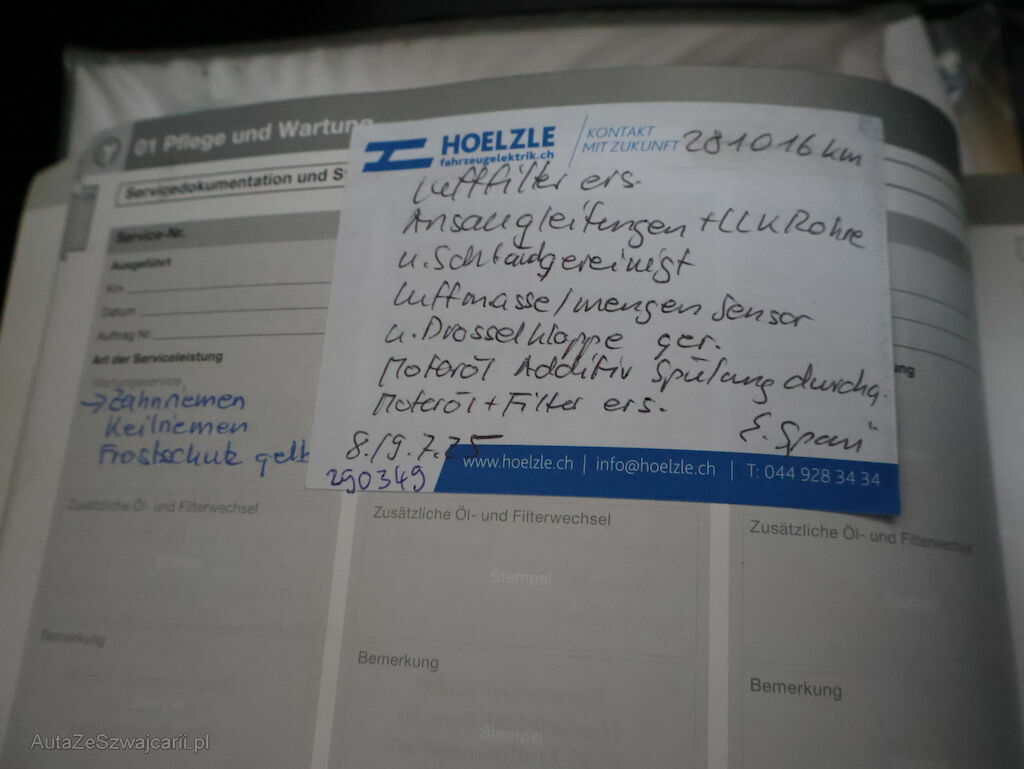 01 Pflege und Wartung
Servicedokumentation und S
Service-Nr.
Ausgeführt
Km
Datum
Auftrag Nr.
Art der Serviceleistung
Wartungsservice
→ Zahnriemen
Keilriemen
Frostschutz gelb
HOELZLE
fahrzeugelektrik.ch
KONTAKT
MIT ZUKUNFT
281016 km
Luftfilter ers.
Ansaugleitungen + LLK Rohre
u. Schlauch gereinigt
Luftmasse/mengen Sensor
u. Drosselklappe ger.
Motoröl Additiv Spülung durchg.
Motoröl + Filter ers.
8./9.7.25
290349
www.hoelzle.ch | info@hoelzle.ch | T: 044 928 34 34
ung
Zusätzliche Öl- und Filterwechsel
Zusätzliche Öl- und Filterwechsel
Zusätzliche Öl- und Filterwechsel
Stempel
Stempel
Stempel
Bemerkung
Bemerkung
Bemerkung
Stempel
Stempel
AutaZeSzwajcarii.pl